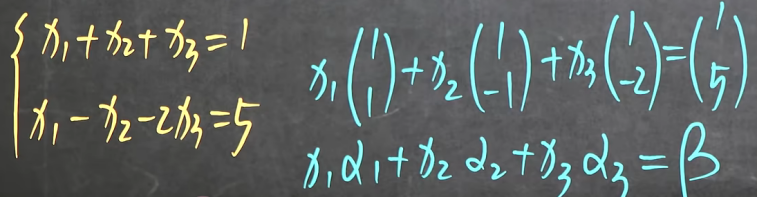 x₁+x₂+x₃=1
x₁-x₂-2x₃=5
x₁(1 1)+x₂(1 -1)+x₃(1 -2)=(1 5)
x₁α₁+x₂α₂+x₃α₃=β